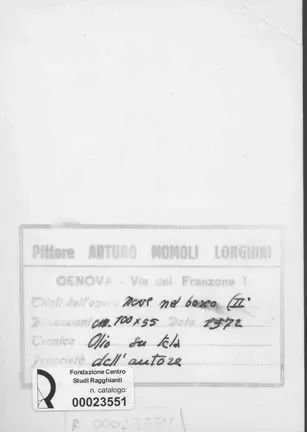 Pittore ARTURO MOMOLI LONGHINI
GENOVA - Via del Franzone 1
Titoli dell'opera neve nel bosco (II°
Dimensioni cm. 100x55 Data 1972
Tecnica Olio su tela
Proprietà dell'autore
Fondazione Centro
Studi Ragghianti
n. catalogo:
00023551
R 00023551